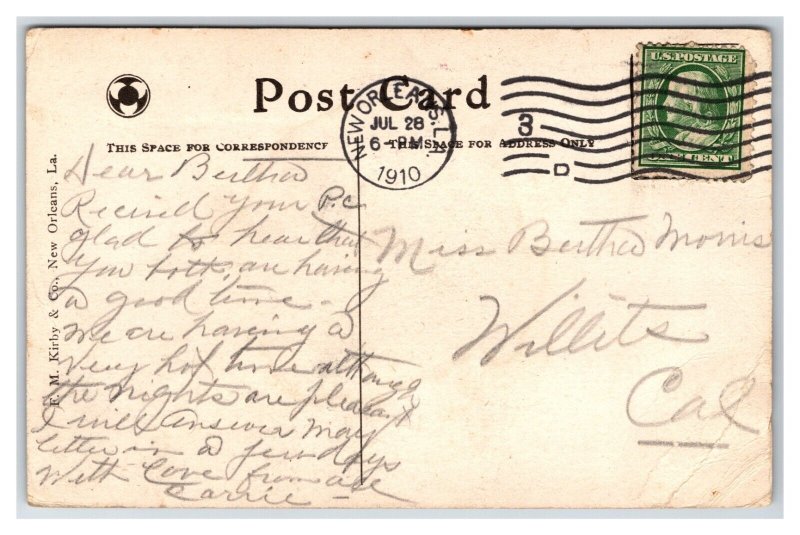 Post Card
THIS SPACE FOR CORRESPONDENCE
THIS SPACE FOR ADDRESS ONLY
NEW ORLEANS, LA.
JUL 28
6-PM
1910
3
D
U.S. POSTAGE
ONE CENT
F. M. Kirby & Co., New Orleans, La.
Dear Bertha
Recived your P.c
glad to hear that
you both are having
a good time -
We are having a
very hot time although
the nights are pleasant
I will answer May
letter in a few days
With Love from all
Carrie -
Miss Bertha Morris
Willits
Cal